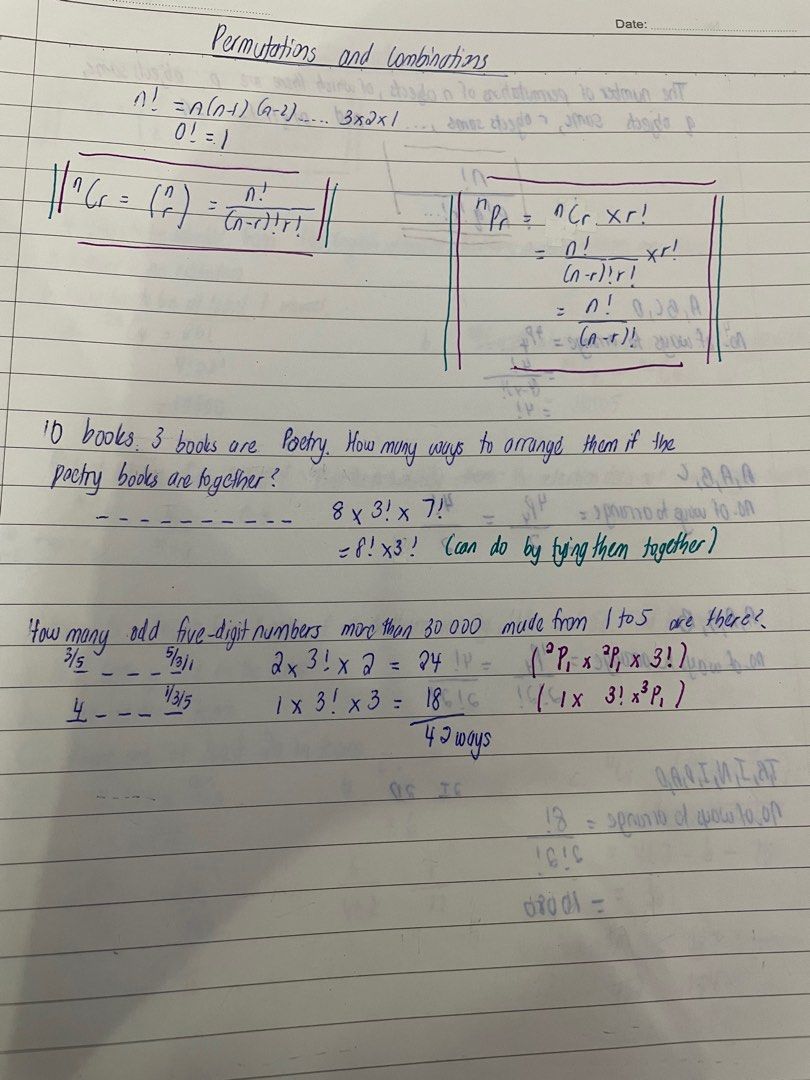 Date:
Permutations and Combinations
n! = n(n-1)(n-2)..... 3x2x1
0! = 1
ⁿCr = (n r) = n!/(n-r)!r!
ⁿPr = ⁿCr x r!
= n!/(n-r)!r! x r!
= n!/(n-r)!
10 books. 3 books are Poetry. How many ways to arrange them if the
poetry books are together?
_ _ _ _ _ _ _ _ _ _ 8 x 3! x 7!
= 8! x 3! (can do by tying them together)
How many odd five-digit numbers more than 30 000 made from 1 to 5 are there?
3/5 _ _ _ 5/3/1 2 x 3! x 2 = 24 (²P₁ x ²P₁ x 3!)
4 _ _ _ 1/3/5 1 x 3! x 3 = 18 (1 x 3! x ³P₁)
42 ways